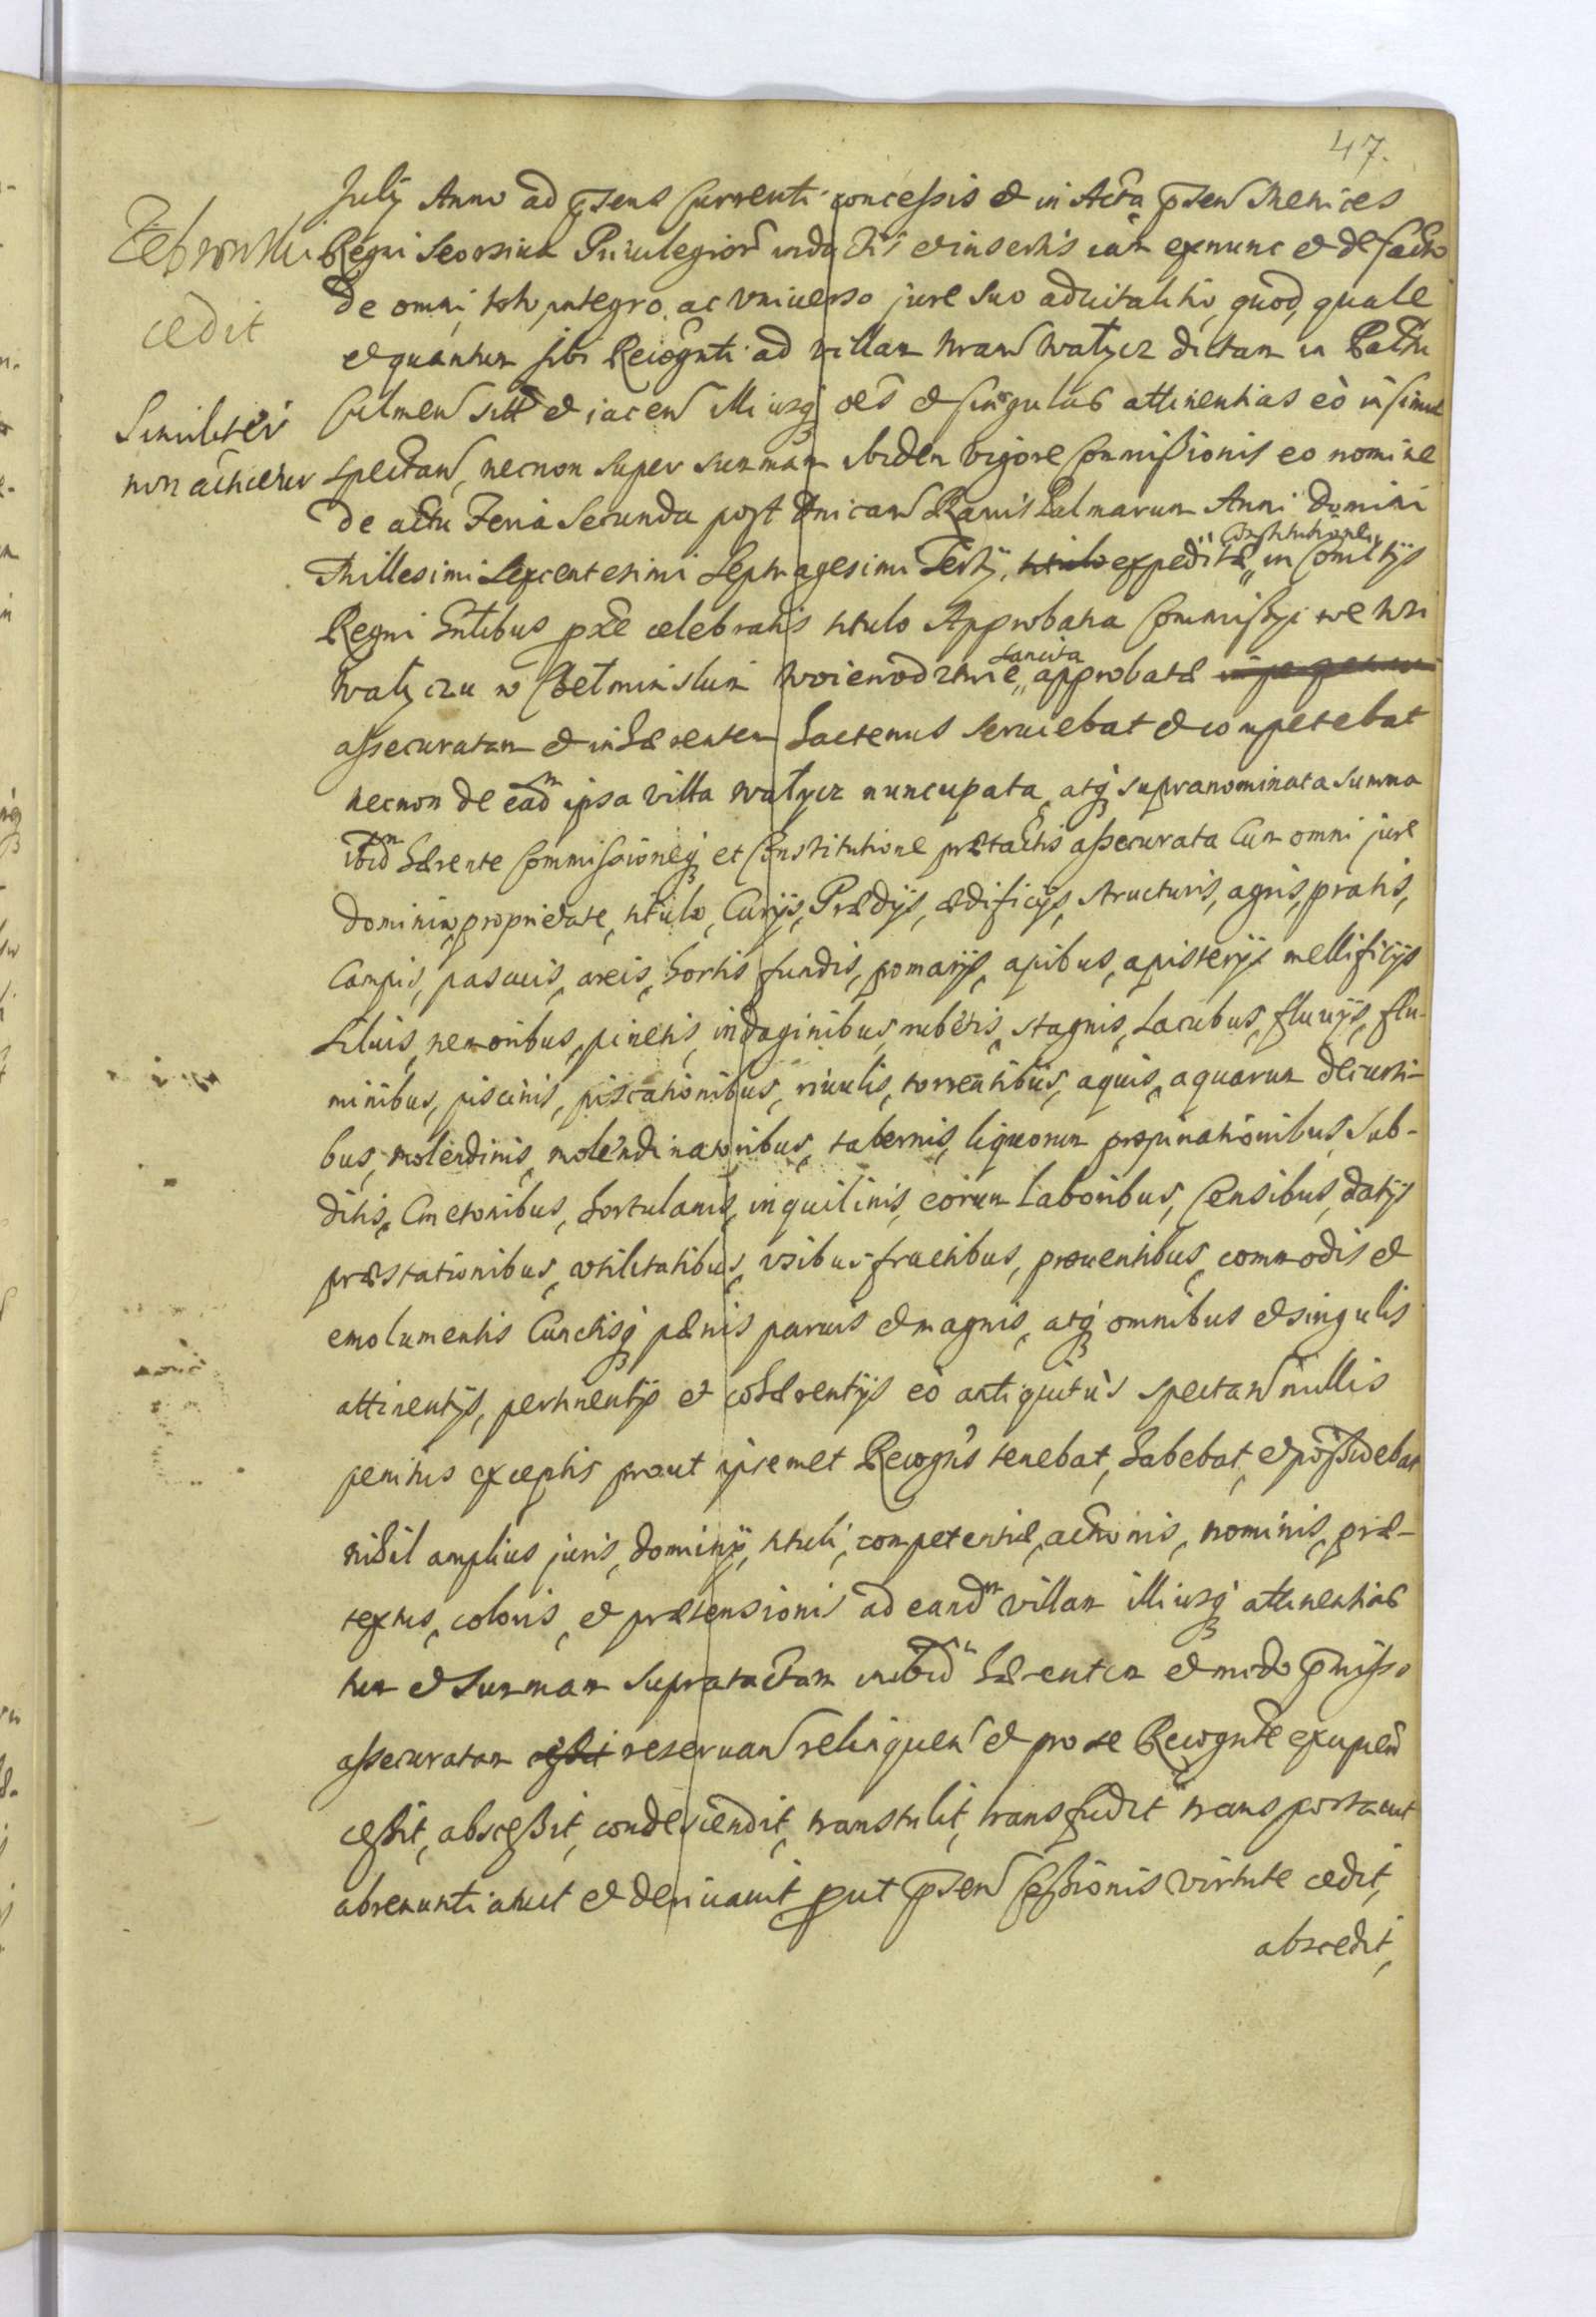 47.
July Anno ad psens Currenti concessis et in Acta psen Metrices
Regni seorsiua Priuilegior inductis et insertis iam exnunc et de facto
de omni, toto, integro, ac vniuerso jure suo aduitalitio, quod, quale
et quantum sibi Recognti ad villam Wałycz dictam in Pattu
Culmen sitt et iacen illiusq oes et singulas attinentias eò insimul
spectan, necnon super summam ibidem vigore Commissionis eo nomine
de actu Feria Secunda post Dnicam Ramis Palmarum Anni Domini
Millesimi Sexcentesimi Septuagesimi Tertij, titulo expeditæ, Constitutione in Comitijs
Regni Gnlibus pxe celebratis titulo Approbatia Commissyi we wsi
Wałyczu w Chełminskim Woiewodztwie sancita approbatæ
assecuratam et inhærentem hactenus seruiebat et competebat
necnon de eadm ipsa villa Wałycz nuncupata, atq supranominata summa
ibidm hærente Commissioneq et Constitutione prætactis assecurata Cum omni jure
dominio, proprietate, titulo, Curijs, Prædijs, ædificijs, structuris, agris, pratis,
Campis, pascuis, areis, hortis fundis, pomarijs, apibus, apisterijs mellificijs
Siluis, nemoribus, pinetis, indaginibus, rubetis, stagnis, Lacubus, fluuijs, flu-
minibus, piscinis, piscationibus, riuulis, torrentibus, aquis, aquarum decursi-
bus, molendinis, molendinatoribus, tabernis, liquorum propinationibus, Sub-
ditis, Cmetonibus, hortulanis, inquilinis, eorum Laboribus, Censibus, datijs
præstationibus, vtilitatibus, vsibus fructibus, prouentibus, commodis et
emolumentis Cunctisq pænis paruis et magnis, atq omnibus et singulis
attinentijs, pertinentijs et cohærentijs eò antiquitùs spectan nullis
penitus exceptis prout ipsemet Recogns tenebat, habebat, et possidebat
nihil amplius juris, dominij, tituli, competentiæ, actionis, nominis, præ-
textus, coloris, et prætensionis ad eandm villam illiusq attinentias
tum et summam supratactam inibid hærentem et modo pmisso
assecuratam cessit reseruan relinquen et pro se Recognte excipien
cessit, abscessit, condescendit, transtulit, transfudit transportauit
abrenuntiauit et deriuauit put psen Cessionis virtute cedit,
abscedit,
cedit
Similiter